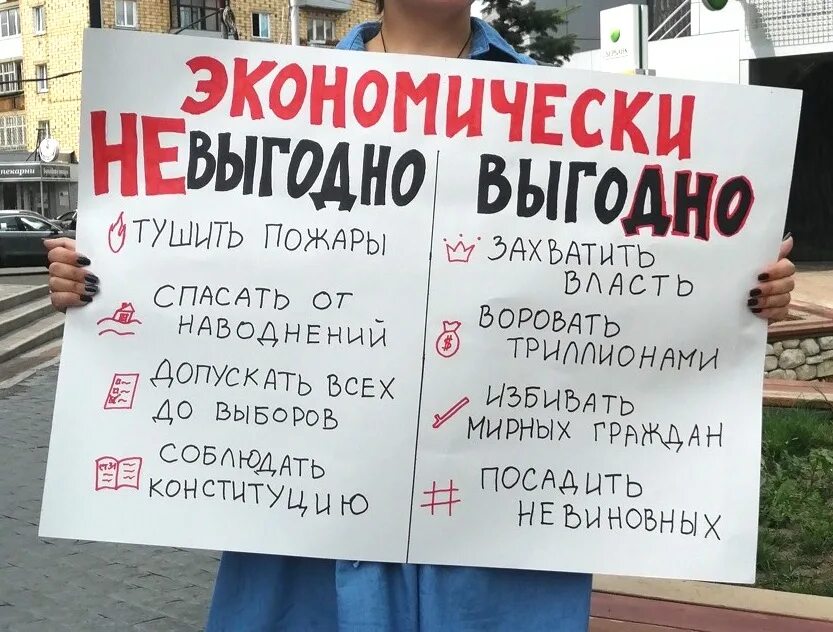 ЭКОНОМИЧЕСКИ
НЕВЫГОДНО
ТУШИТЬ ПОЖАРЫ
СПАСАТЬ ОТ
НАВОДНЕНИЙ
ДОПУСКАТЬ ВСЕХ
ДО ВЫБОРОВ
СТ 31
СОБЛЮДАТЬ
КОНСТИТУЦИЮ
ВЫГОДНО
ЗАХВАТИТЬ
ВЛАСТЬ
$
ВОРОВАТЬ
ТРИЛЛИОНАМИ
ИЗБИВАТЬ
МИРНЫХ ГРАЖДАН
#
ПОСАДИТЬ
НЕВИНОВНЫХ
СБЕРБАНК